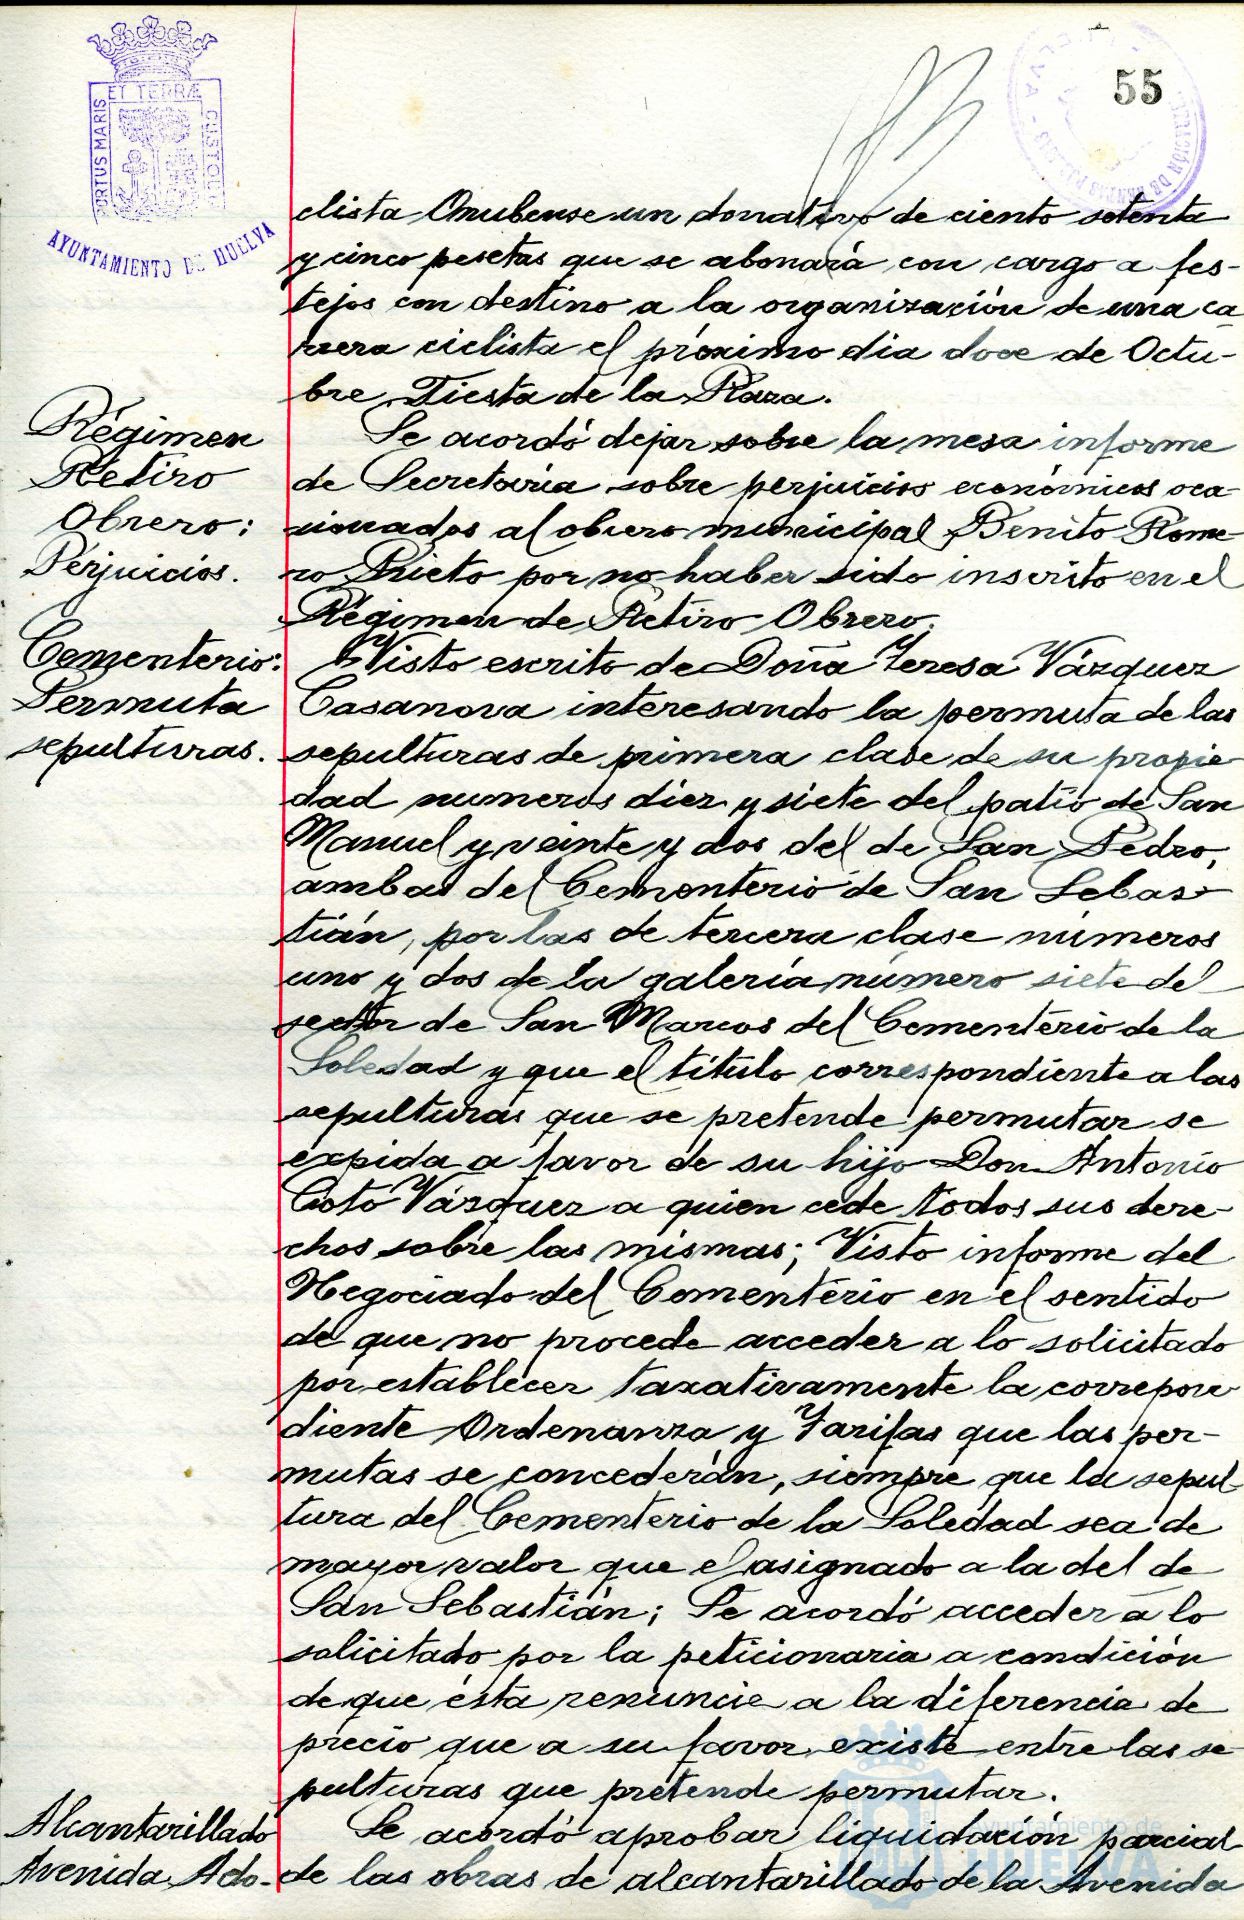 55
PORTUS MARIS ET TERRÆ CUSTODIA
AYUNTAMIENTO DE HUELVA
clista Onubense un donativo de ciento setenta
y cinco pesetas que se abonará con cargo a fes-
tejos con destino a la organización de una ca
rrera ciclista el próximo dia doce de Octu-
bre, Fiesta de la Raza.
Régimen
Retiro
Obrero:
Perjuicios.
Se acordó dejar sobre la mesa informe
de Secretaría sobre perjuicios económicos oca
sionados al obrero municipal Benito Rome
ro Prieto por no haber sido inscrito en el
Régimen de Retiro Obrero.
Cementerio:
Permuta
sepulturas.
Visto escrito de Doña Teresa Vázquez
Casanova interesando la permuta de las
sepulturas de primera clase de su propie
dad numeros diez y siete del patio de San
Manuel y veinte y dos del de San Pedro,
ambas del Cementerio de San Sebas-
tián, por las de tercera clase números
uno y dos de la galería número siete del
sector de San Marcos del Cementerio de la
Soledad y que el título correspondiente a las
sepulturas que se pretende permutar se
expida a favor de su hijo Don Antonio
Coto Vázquez a quien cede todos sus dere-
chos sobre las mismas; Visto informe del
Negociado del Cementerio en el sentido
de que no procede acceder a lo solicitado
por establecer taxativamente la correpon
diente Ordenanza y Tarifas que las per-
mutas se concederán, siempre que la sepul
tura del Cementerio de la Soledad sea de
mayor valor que el asignado a la del de
San Sebastián; Se acordó acceder a lo
solicitado por la peticionaria a condición
de que ésta renuncie a la diferencia de
precio que a su favor existe entre las se-
pulturas que pretende permutar.
Alcantarillado
Avenida Ado-
Se acordó aprobar liquidación parcial
de las obras de alcantarillado de la Avenida
Ayuntamiento de
HUELVA